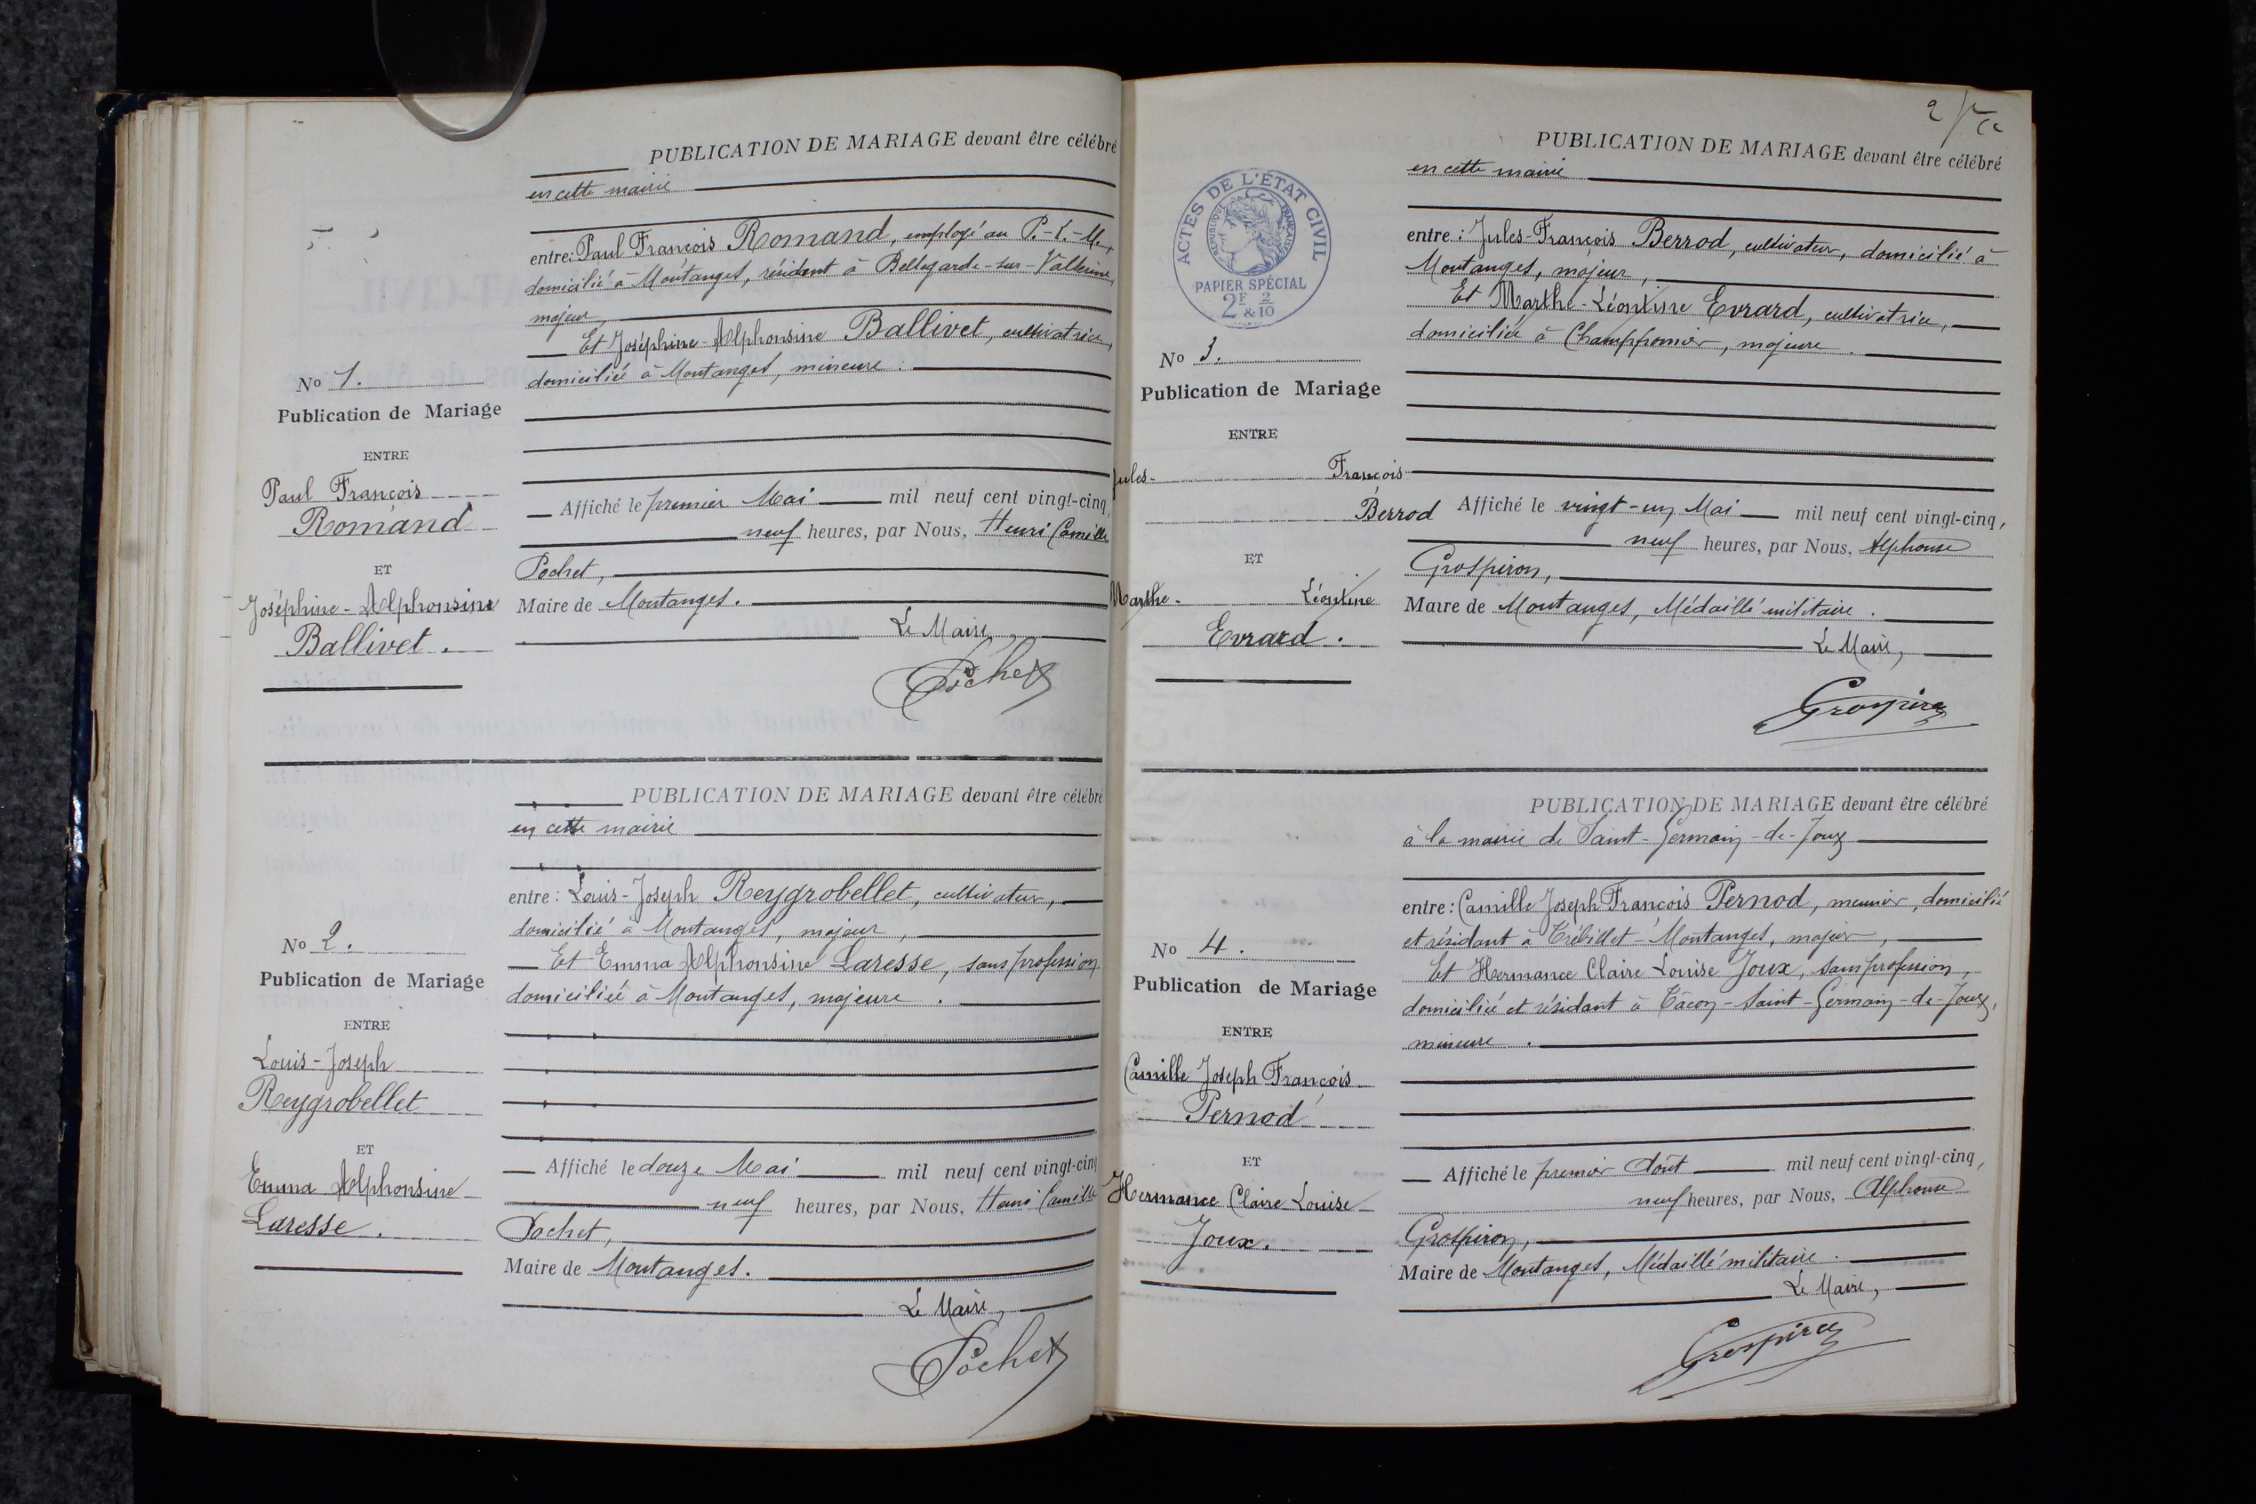 PUBLICATION DE MARIAGE devant être célébré
en cette mairie
entre: Paul François Romand, employé au P.-L.-M.,
domicilié à Montanges, résident à Bellegarde-sur-Valserine,
majeur,
Et Joséphine-Alphonsine Ballivet, cultivatrice,
domiciliée à Montanges, mineure.
No 1.
Publication de Mariage
ENTRE
Paul François
Romand
ET
Joséphine-Alphonsine
Ballivet.
Affiché le premier Mai mil neuf cent vingt-cinq,
neuf heures, par Nous, Henri Camille
Pochet,
Maire de Montanges.
Le Maire,
Pochet
PUBLICATION DE MARIAGE devant être célébré
en cette mairie
entre: Louis-Joseph Reygrobellet, cultivateur,
domicilié à Montanges, majeur,
Et Emma Alphonsine Laresse, sans profession
domiciliée à Montanges, majeure.
No 2.
Publication de Mariage
ENTRE
Louis-Joseph
Reygrobellet
ET
Emma Alphonsine
Laresse.
Affiché le douze Mai mil neuf cent vingt-cinq
neuf heures, par Nous, Henri Camille
Pochet,
Maire de Montanges.
Le Maire,
Pochet
2
PUBLICATION DE MARIAGE devant être célébré
en cette mairie
entre: Jules-François Berrod, cultivateur, domicilié à
Montanges, majeur,
Et Marthe-Léontine Evrard, cultivatrice,
domiciliée à Champfromier, majeure.
ACTES DE L'ÉTAT CIVIL
RÉPUBLIQUE FRANÇAISE
PAPIER SPÉCIAL
2F & 2/10
No 3.
Publication de Mariage
ENTRE
Jules- François
Berrod
ET
Marthe- Léontine
Evrard.
Affiché le vingt-un Mai mil neuf cent vingt-cinq,
neuf heures, par Nous, Alphonse
Grospiron,
Maire de Montanges, Médaillé militaire.
Le Maire,
Grospiron
PUBLICATION DE MARIAGE devant être célébré
à la mairie de Saint-Germain-de-Joux
entre: Camille Joseph François Pernod, meunier, domicilié
et résidant à Trébillet-Montanges, majeur,
Et Hermance Claire Louise Joux, sans profession,
domiciliée et résidant à Tacon-Saint-Germain-de-Joux,
mineure.
No 4.
Publication de Mariage
ENTRE
Camille Joseph François
Pernod
ET
Hermance Claire Louise
Joux.
Affiché le premier Août mil neuf cent vingt-cinq,
neuf heures, par Nous, Alphonse
Grospiron,
Maire de Montanges, Médaillé militaire.
Le Maire,
Grospiron